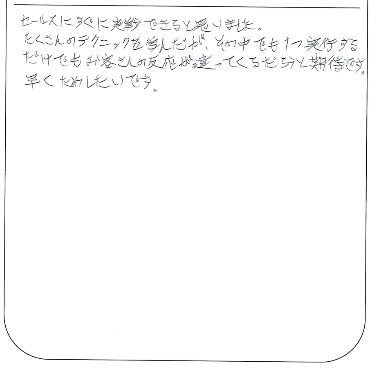 セールスにすぐに実践できると思いました。
たくさんのテクニックを学んだが、その中でも1つ実行する
だけでもお客さんの反応が違ってくるだろうと期待です。
早くためしたいです。